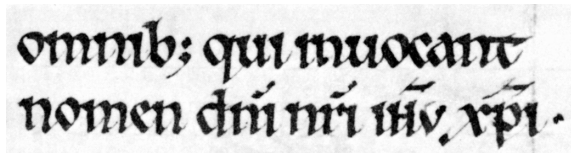 omnib; qui inuocant
nomen dn̄i nr̄i ih̄v. xp̄i.